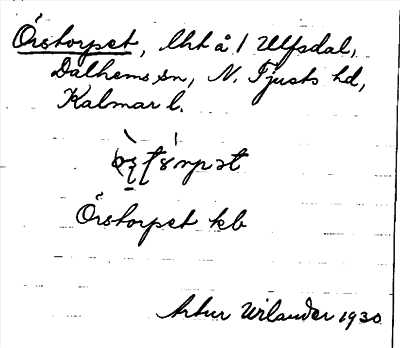 Örstorpet, lht å 1 Ulfsdal,
Dalhems sn, N. Tjusts hd,
Kalmar l.
Örstorpet kb
Artur Wilander 1930